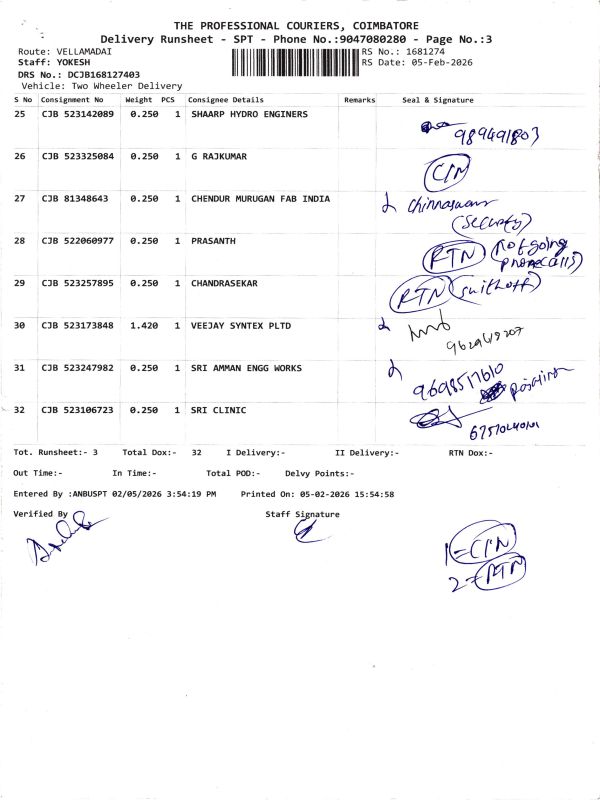 THE PROFESSIONAL COURIERS, COIMBATORE
Delivery Runsheet - SPT - Phone No.:9047080280 - Page No.:3
Route: VELLAMADAI RS No.: 1681274
Staff: YOKESH RS Date: 05-Feb-2026
DRS No.: DCJB168127403
Vehicle: Two Wheeler Delivery
S No Consignment No Weight PCS Consignee Details Remarks Seal & Signature
25 CJB 523142089 0.250 1 SHAARP HYDRO ENGINERS
9894491803
26 CJB 523325084 0.250 1 G RAJKUMAR
C/N
27 CJB 81348643 0.250 1 CHENDUR MURUGAN FAB INDIA
(Security)
28 CJB 522060977 0.250 1 PRASANTH
RTN (not going phone calls)
29 CJB 523257895 0.250 1 CHANDRASEKAR
RTN
30 CJB 523173848 1.420 1 VEEJAY SYNTEX PLTD
31 CJB 523247982 0.250 1 SRI AMMAN ENGG WORKS
9698517610
32 CJB 523106723 0.250 1 SRI CLINIC
Tot. Runsheet:- 3 Total Dox:- 32 I Delivery:- II Delivery:- RTN Dox:-
Out Time:- In Time:- Total POD:- Delvy Points:-
Entered By :ANBUSPT 02/05/2026 3:54:19 PM Printed On: 05-02-2026 15:54:58
Verified By Staff Signature
1 = C/N
2 = RTN